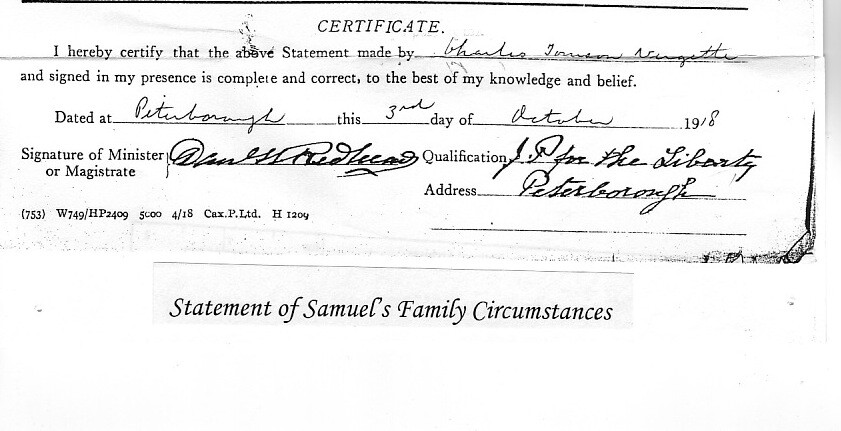 CERTIFICATE.
I hereby certify that the above Statement made by Charles
and signed in my presence is complete and correct, to the best of my knowledge and belief.
Dated at Peterborough this 3rd day of October 1918
Signature of Minister or Magistrate Redhead Qualification J.P for the Liberty
Address Peterborough
(753) W749/HP2409 5000 4/18 Cax.P.Ltd. H 1209
Statement of Samuel's Family Circumstances